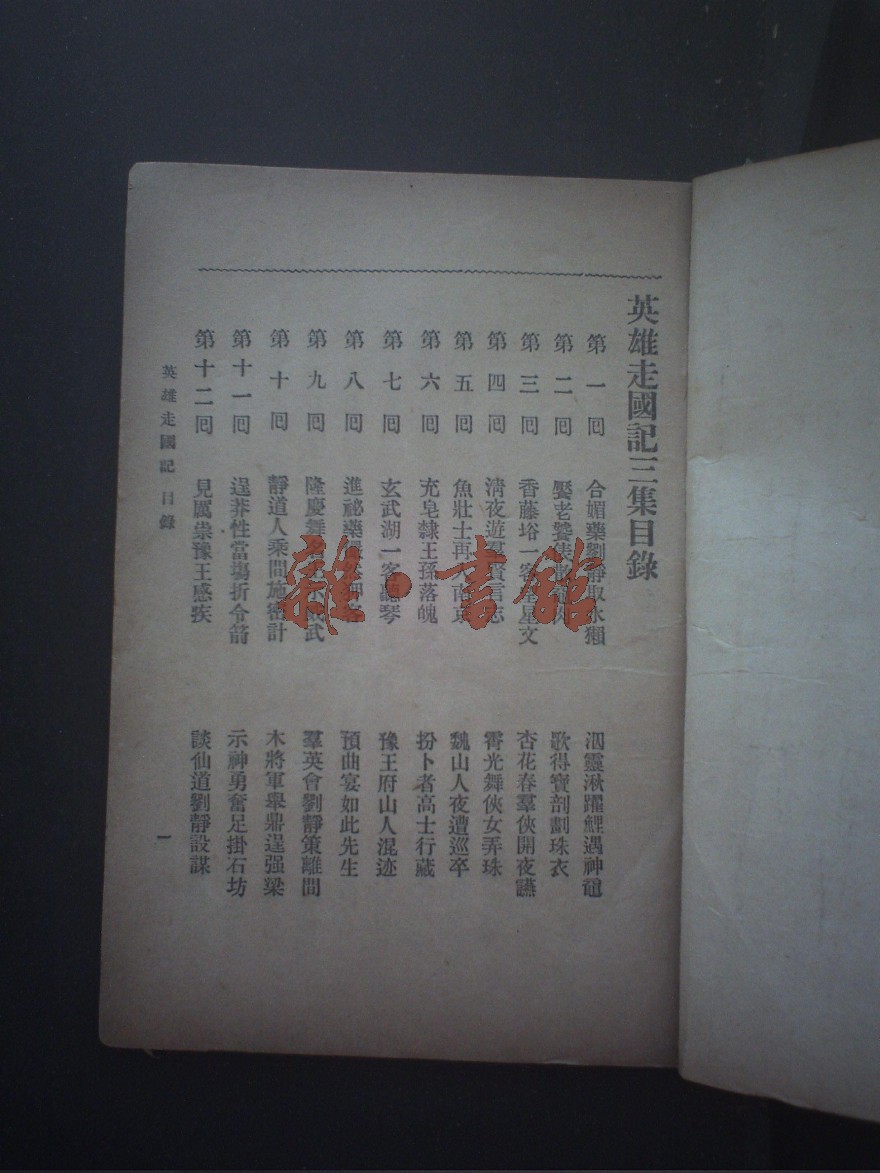 英雄走國記三集目錄
第一回 合媚藥劉靜取水獺 泅靈湫躍鯉遇神黿
第二回 娶老 歌得寶剖劃珠衣
第三回 香藤峪一客 星文 杏花春羣俠開夜讌
第四回 清夜遊羣賢言志 霄光舞俠女弄珠
第五回 魚壯士再入南京 魏山人夜遭巡卒
第六回 充皂隸王孫落魄 扮卜者高士行藏
第七回 玄武湖一客聽琴 豫王府山人混迹
第八回 進祕藥 預曲宴如此先生
第九回 隆慶舞 威武 羣英會劉靜策離間
第十回 靜道人乘間施密計 木將軍舉鼎逞强梁
第十一回 逞莽性當場折令箭 示神勇奮足掛石坊
第十二回 見厲祟豫王感疾 談仙道劉靜設謀
英雄走國記 目錄
一
雜·書館